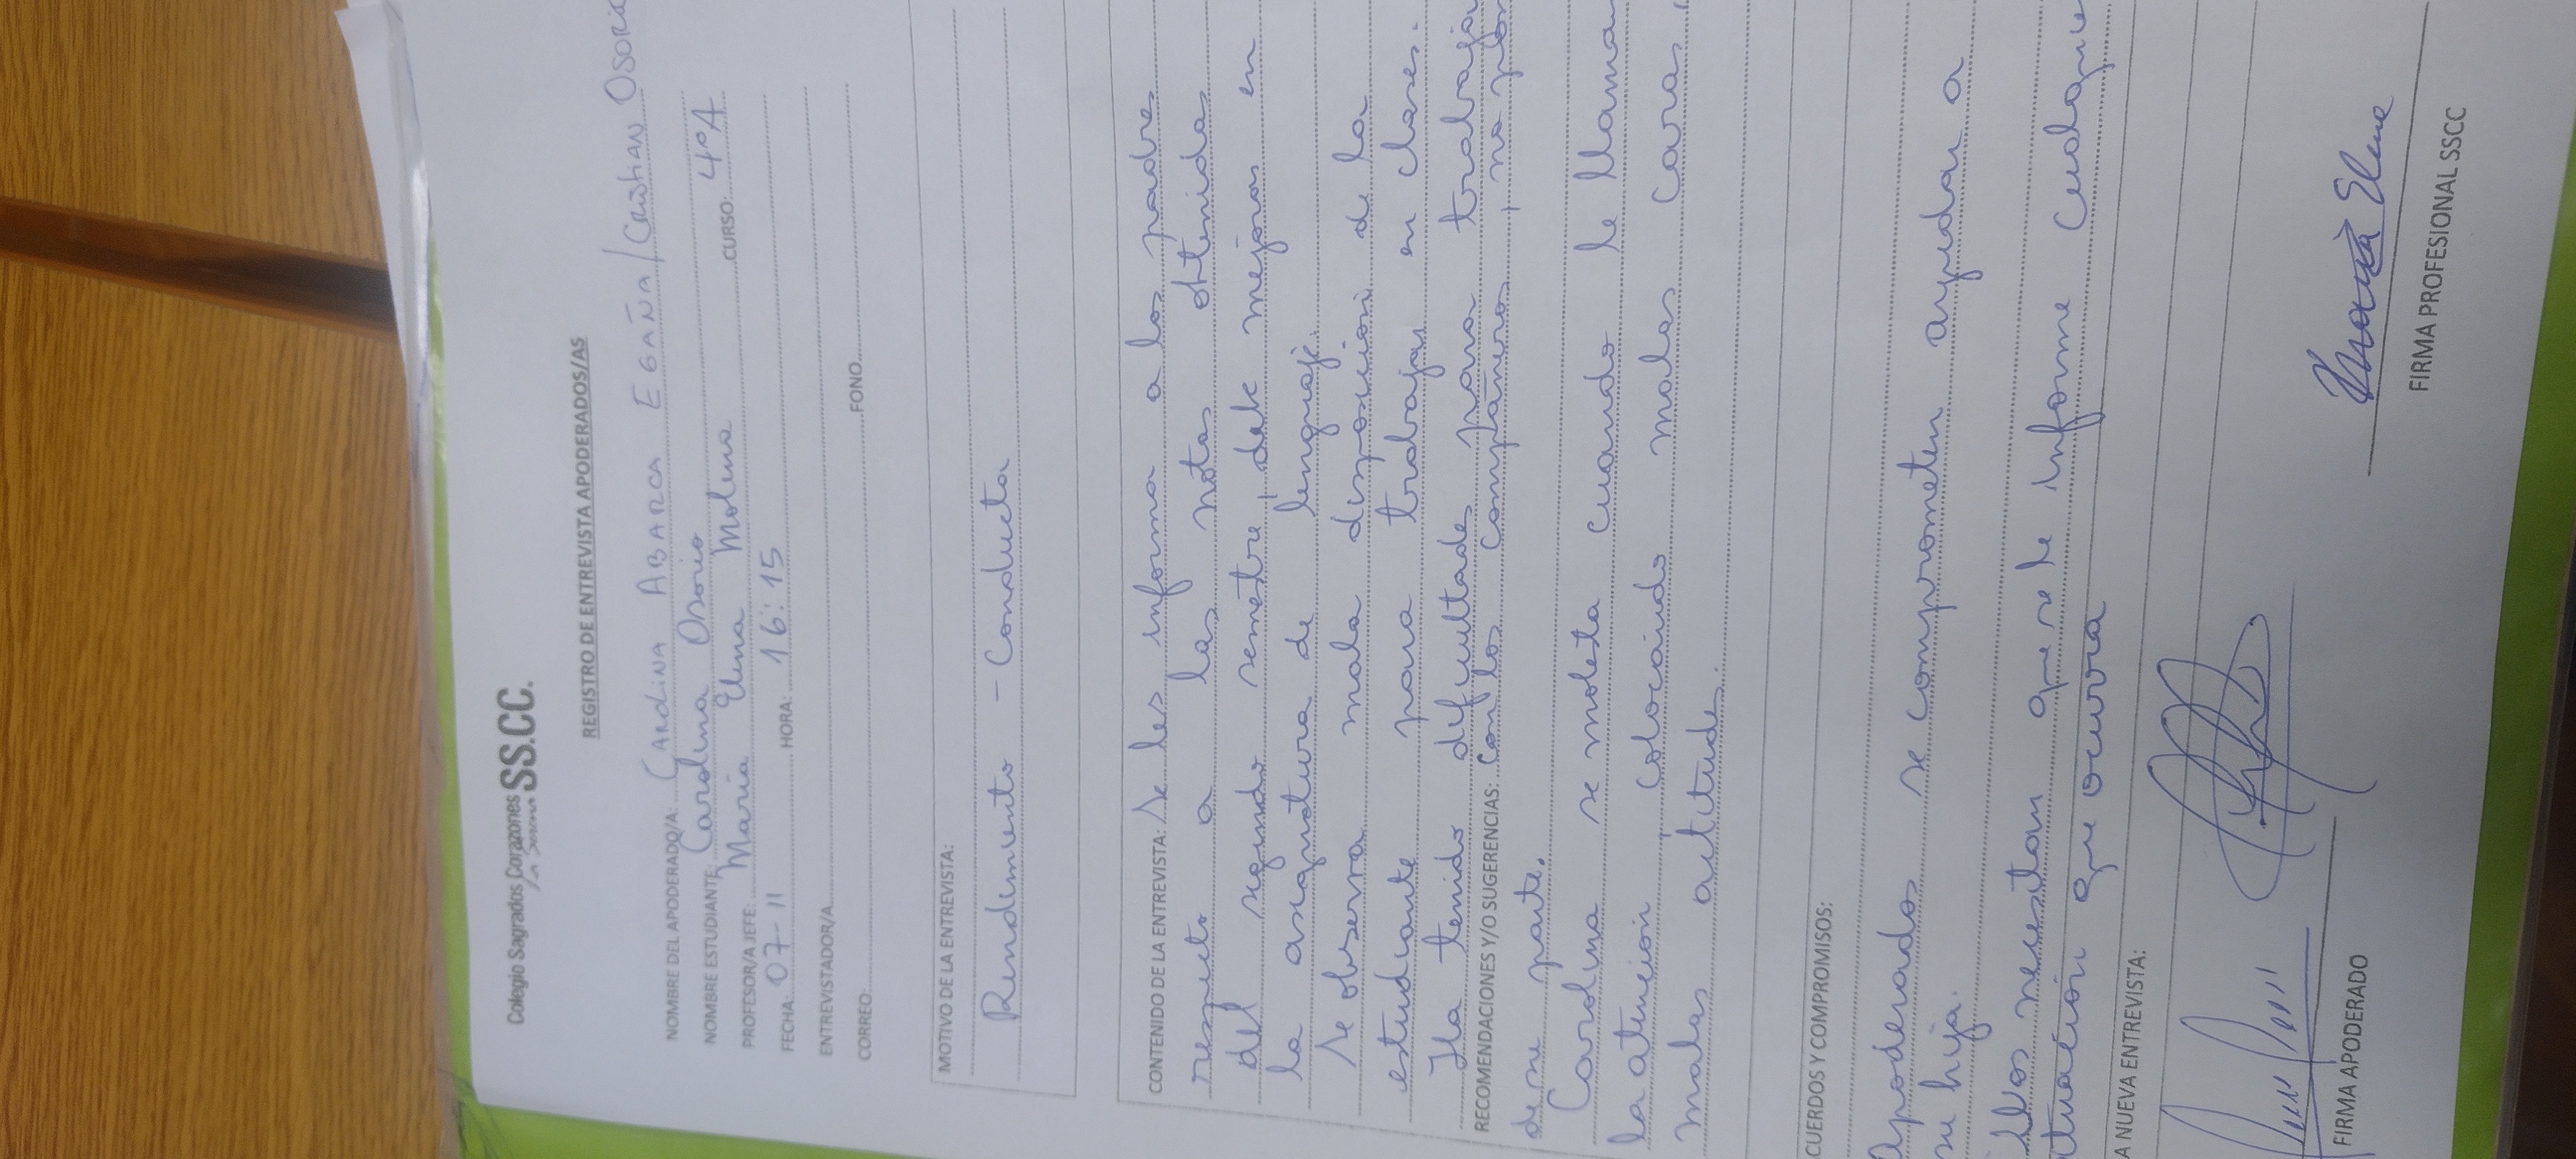 Colegio Sagrados Corazones SS.CC.
La Serena
REGISTRO DE ENTREVISTA APODERADOS/AS
NOMBRE DEL APODERADO/A: CAROLINA ABARCA EGAÑA / CRISTIAN OSORIO
NOMBRE ESTUDIANTE: Carolina Osorio CURSO: 4°A
PROFESOR/A JEFE: María Elena Molina
FECHA: 07-11 HORA: 16:15
ENTREVISTADOR/A
CORREO: FONO
MOTIVO DE LA ENTREVISTA:
Rendimiento - Conducta
CONTENIDO DE LA ENTREVISTA: Se les informa a los padres
respecto a las notas obtenidas
del segundo semestre, debe mejorar en
la asignatura de lenguaje.
Se observa mala disposición de la
estudiante para trabajar en clases.
Ha tenido dificultades para trabajar
RECOMENDACIONES Y/O SUGERENCIAS: Con los compañeros, no pone
de su parte.
Carolina se molesta cuando le llaman
la atención, colocando malas caras,
malas actitudes.
CUERDOS Y COMPROMISOS:
Apoderados se comprometen ayudar a
su hija.
Ellos necesitan que se le informe cualquie
tuación que ocurra
A NUEVA ENTREVISTA:
FIRMA APODERADO
María Elena
FIRMA PROFESIONAL SSCC